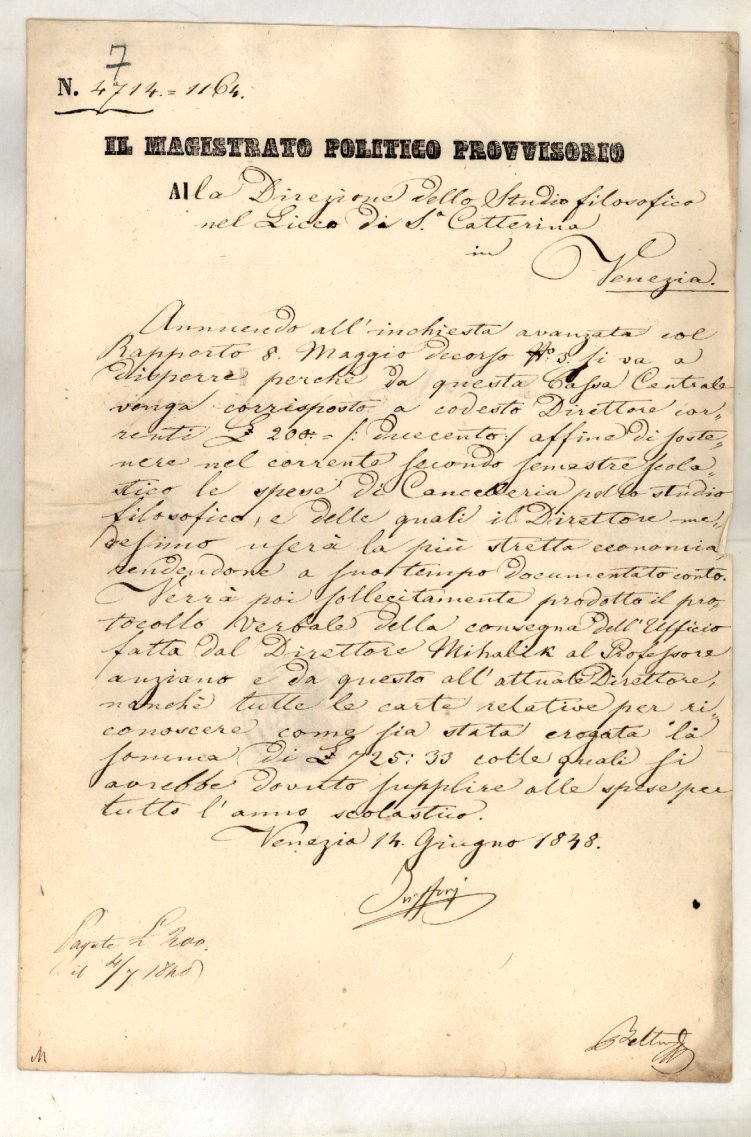 7
N. 4714. = 1164.
IL MAGISTRATO POLITICO PROVVISORIO
Alla Direzione dello Studio filosofico
nel Liceo di S.a Catterina
in
Venezia.
Annuendo all'inchiesta avanzata col
Rapporto 8. Maggio decorso N.o 3. si va a
disporre perchè da questa Cassa Centrale
venga corrisposto a codesto Direttore cor„
renti £ 200: = /: duecento :/ affine di soste„
nere nel corrente secondo semestre scola„
stico le spese di Cancelleria pello studio
filosofico, e delle quali il Direttore me„
desimo userà la più stretta economia,
rendendone a suo tempo documentato conto.
Verrà poi sollecitamente prodotto il pro„
tocollo verbale della consegna dell'Ufficio
fatta dal Direttore Mihalik al Professore
anziano e da questo all'attuale Direttore,
nonchè tutte le carte relative per ri„
conoscere come sia stata erogata la
somma di £ 725: 33 colle quali si
avrebbe dovuto supplire alle spese per
tutto l'anno scolastico.
Venezia 14. Giugno 1848.
Pagate L. 200.
il 4/7 1848
M